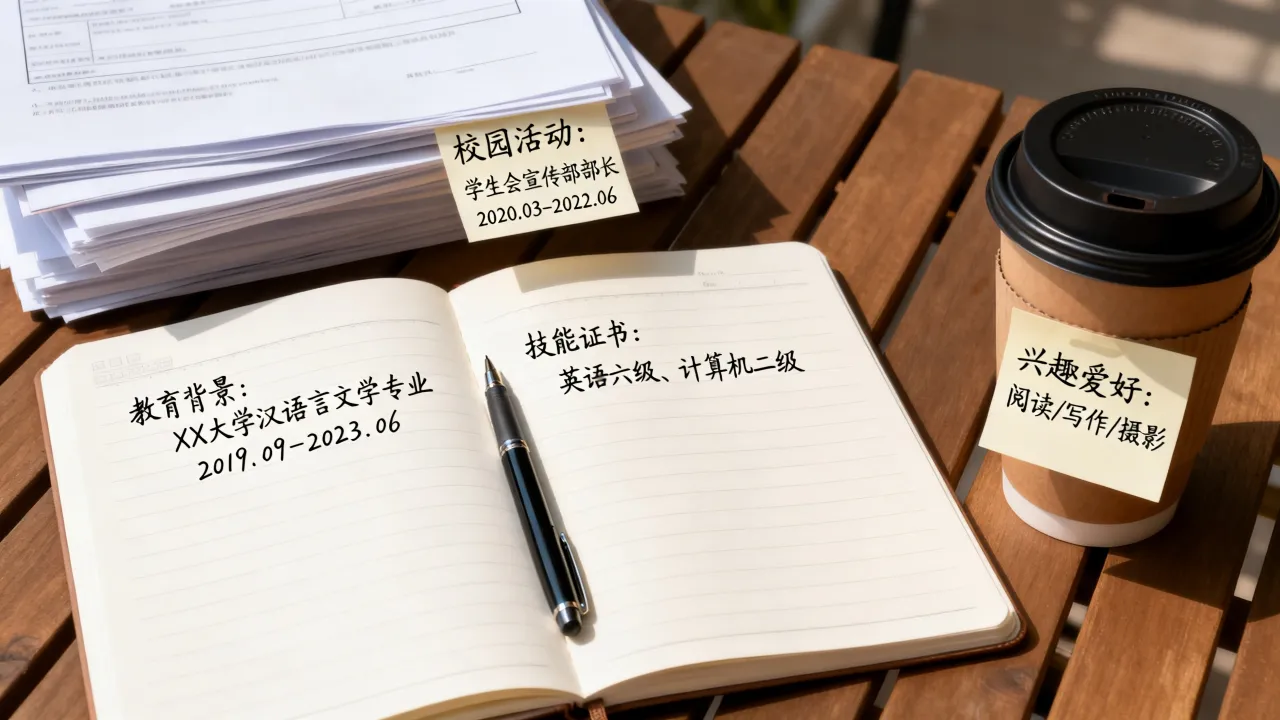 校园活动：
学生会宣传部部长
2020.03-2022.06
教育背景：
XX大学汉语言文学专业
2019.09-2023.06
技能证书：
英语六级、计算机二级
兴趣爱好：
阅读/写作/摄影